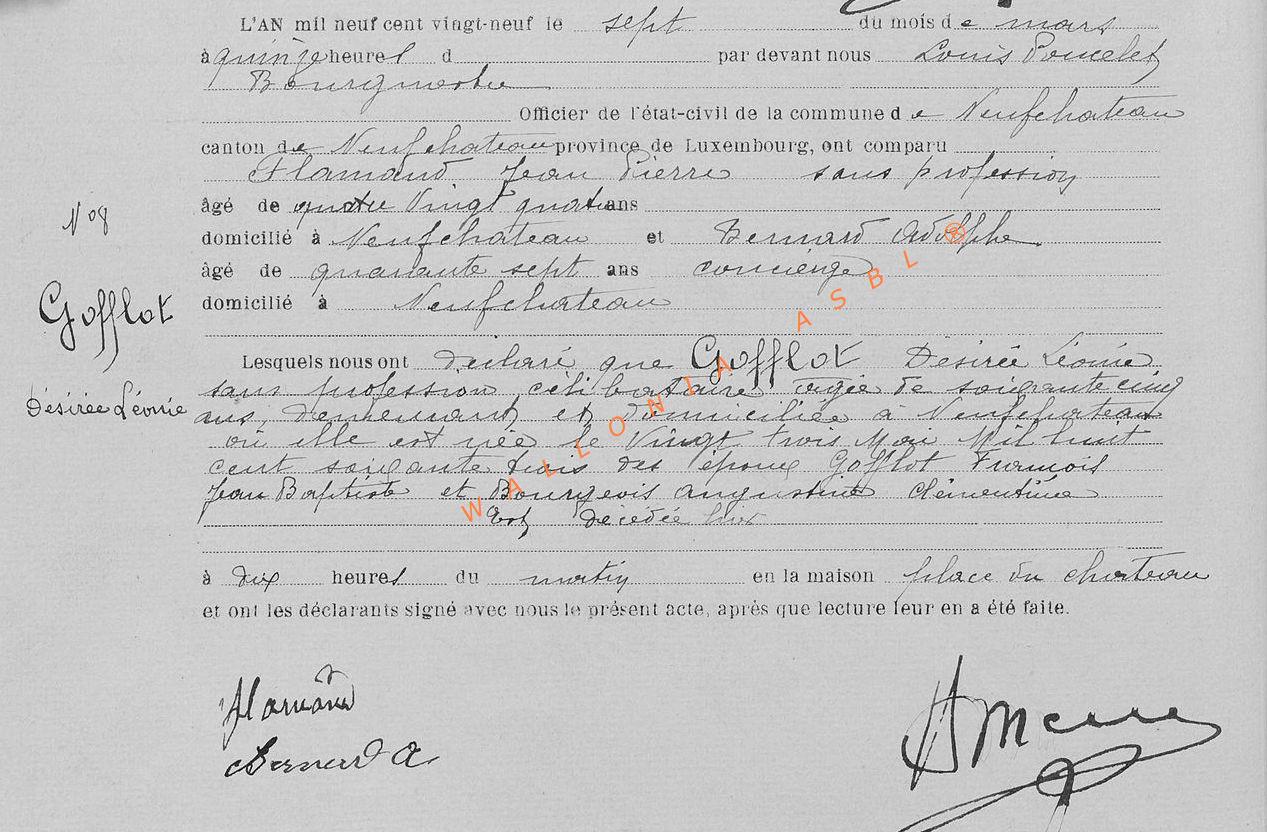 L'AN mil neuf cent vingt-neuf le sept du mois de mars
à quinze heures d par devant nous Louis Poncelet
Bourgmestre
Officier de l'état-civil de la commune de Neufchateau
canton de Neufchateau province de Luxembourg, ont comparu
Flamand Jean Pierre sans profession
N° 8
âgé de quatre vingt quatre ans
domicilié à Neufchateau et Bernard Adolphe
âgé de quarante sept ans concierge
domicilié à Neufchateau
Gofflot
Désirée Léonie
Lesquels nous ont déclaré que Gofflot Désirée Léonie
sans profession célibataire agée de soixante cinq
ans, demeurant et domiciliée à Neufchateau
où elle est née le Vingt trois Mai Mil huit
cent soixante trois des époux Gofflot François
Jean Baptiste et Bourgeois Augustine Clémentine
Est décédée hier
à dix heures du matin en la maison place du chateau
et ont les déclarants signé avec nous le présent acte, après que lecture leur en a été faite.
Flamand
Bernard A
WALLONIA ASBL ®